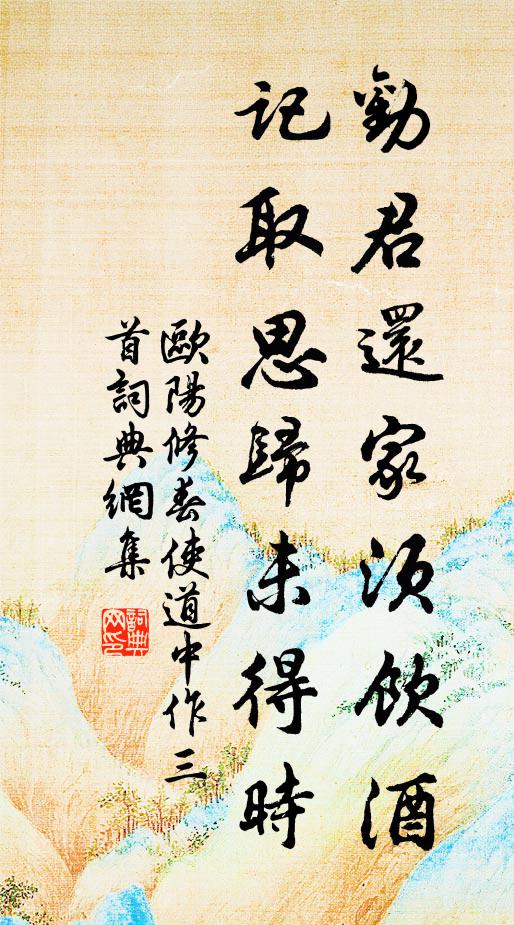 勸君還家須飲酒
記取思歸未得時
歐陽修奉使道中作三
首詞典網集
詞典